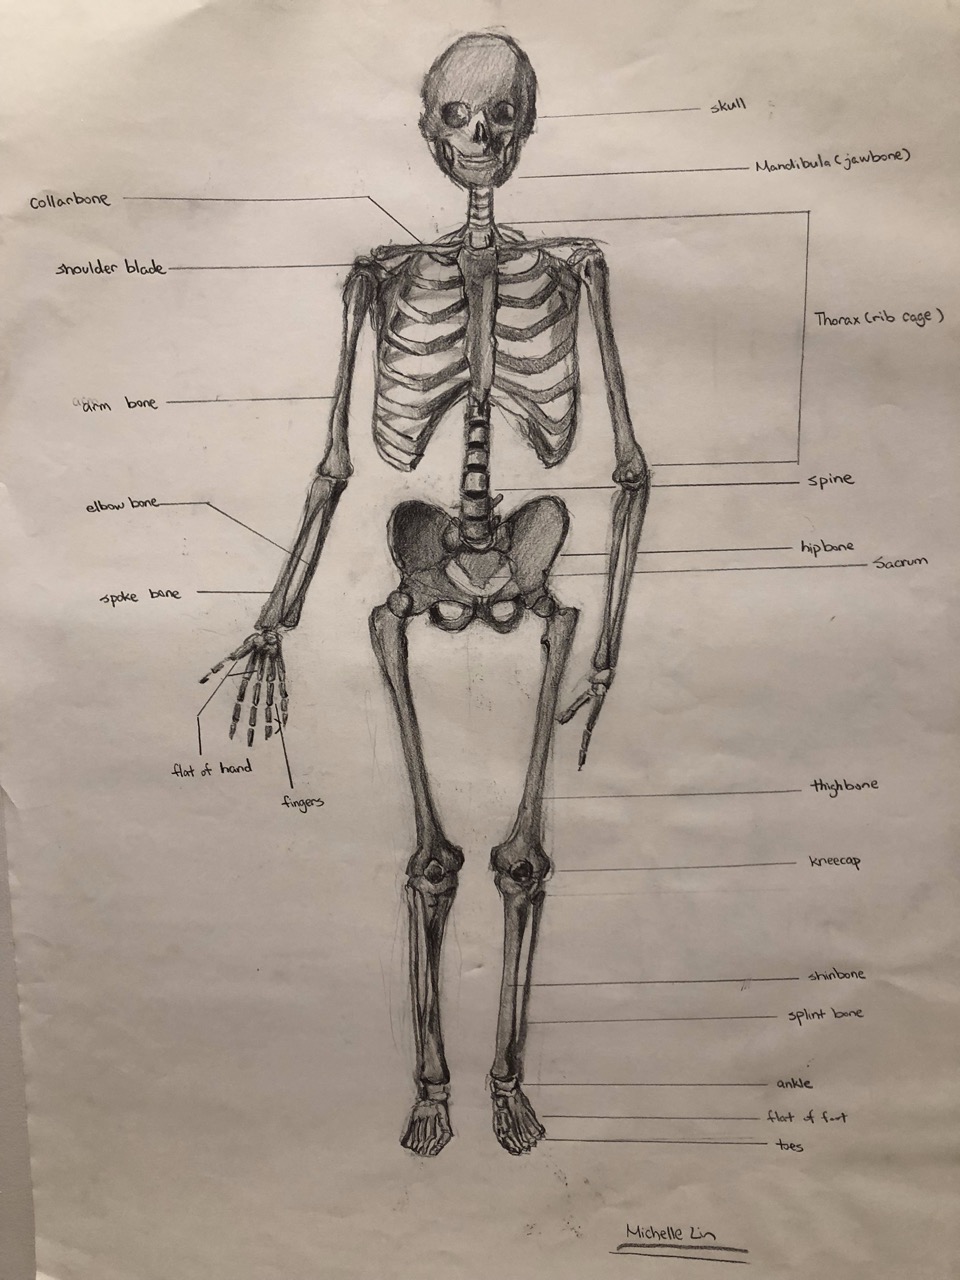 skull
Mandibula (jawbone)
Collarbone
shoulder blade
Thorax (rib cage)
arm bone
spine
elbow bone
hipbone
Sacrum
spoke bone
flat of hand
fingers
thighbone
kneecap
shinbone
splint bone
ankle
flat of foot
toes
Michelle Lin